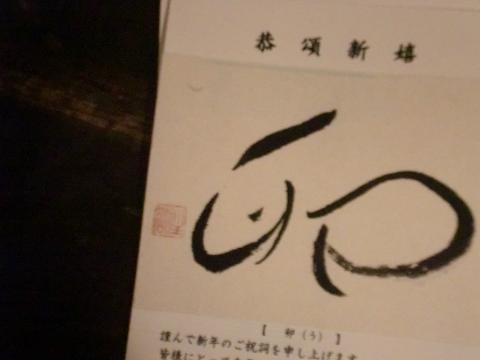 恭頌新嬉
卯
【 卯（う） 】
謹んで新年のご祝詞を申し上げます
皆様にとって